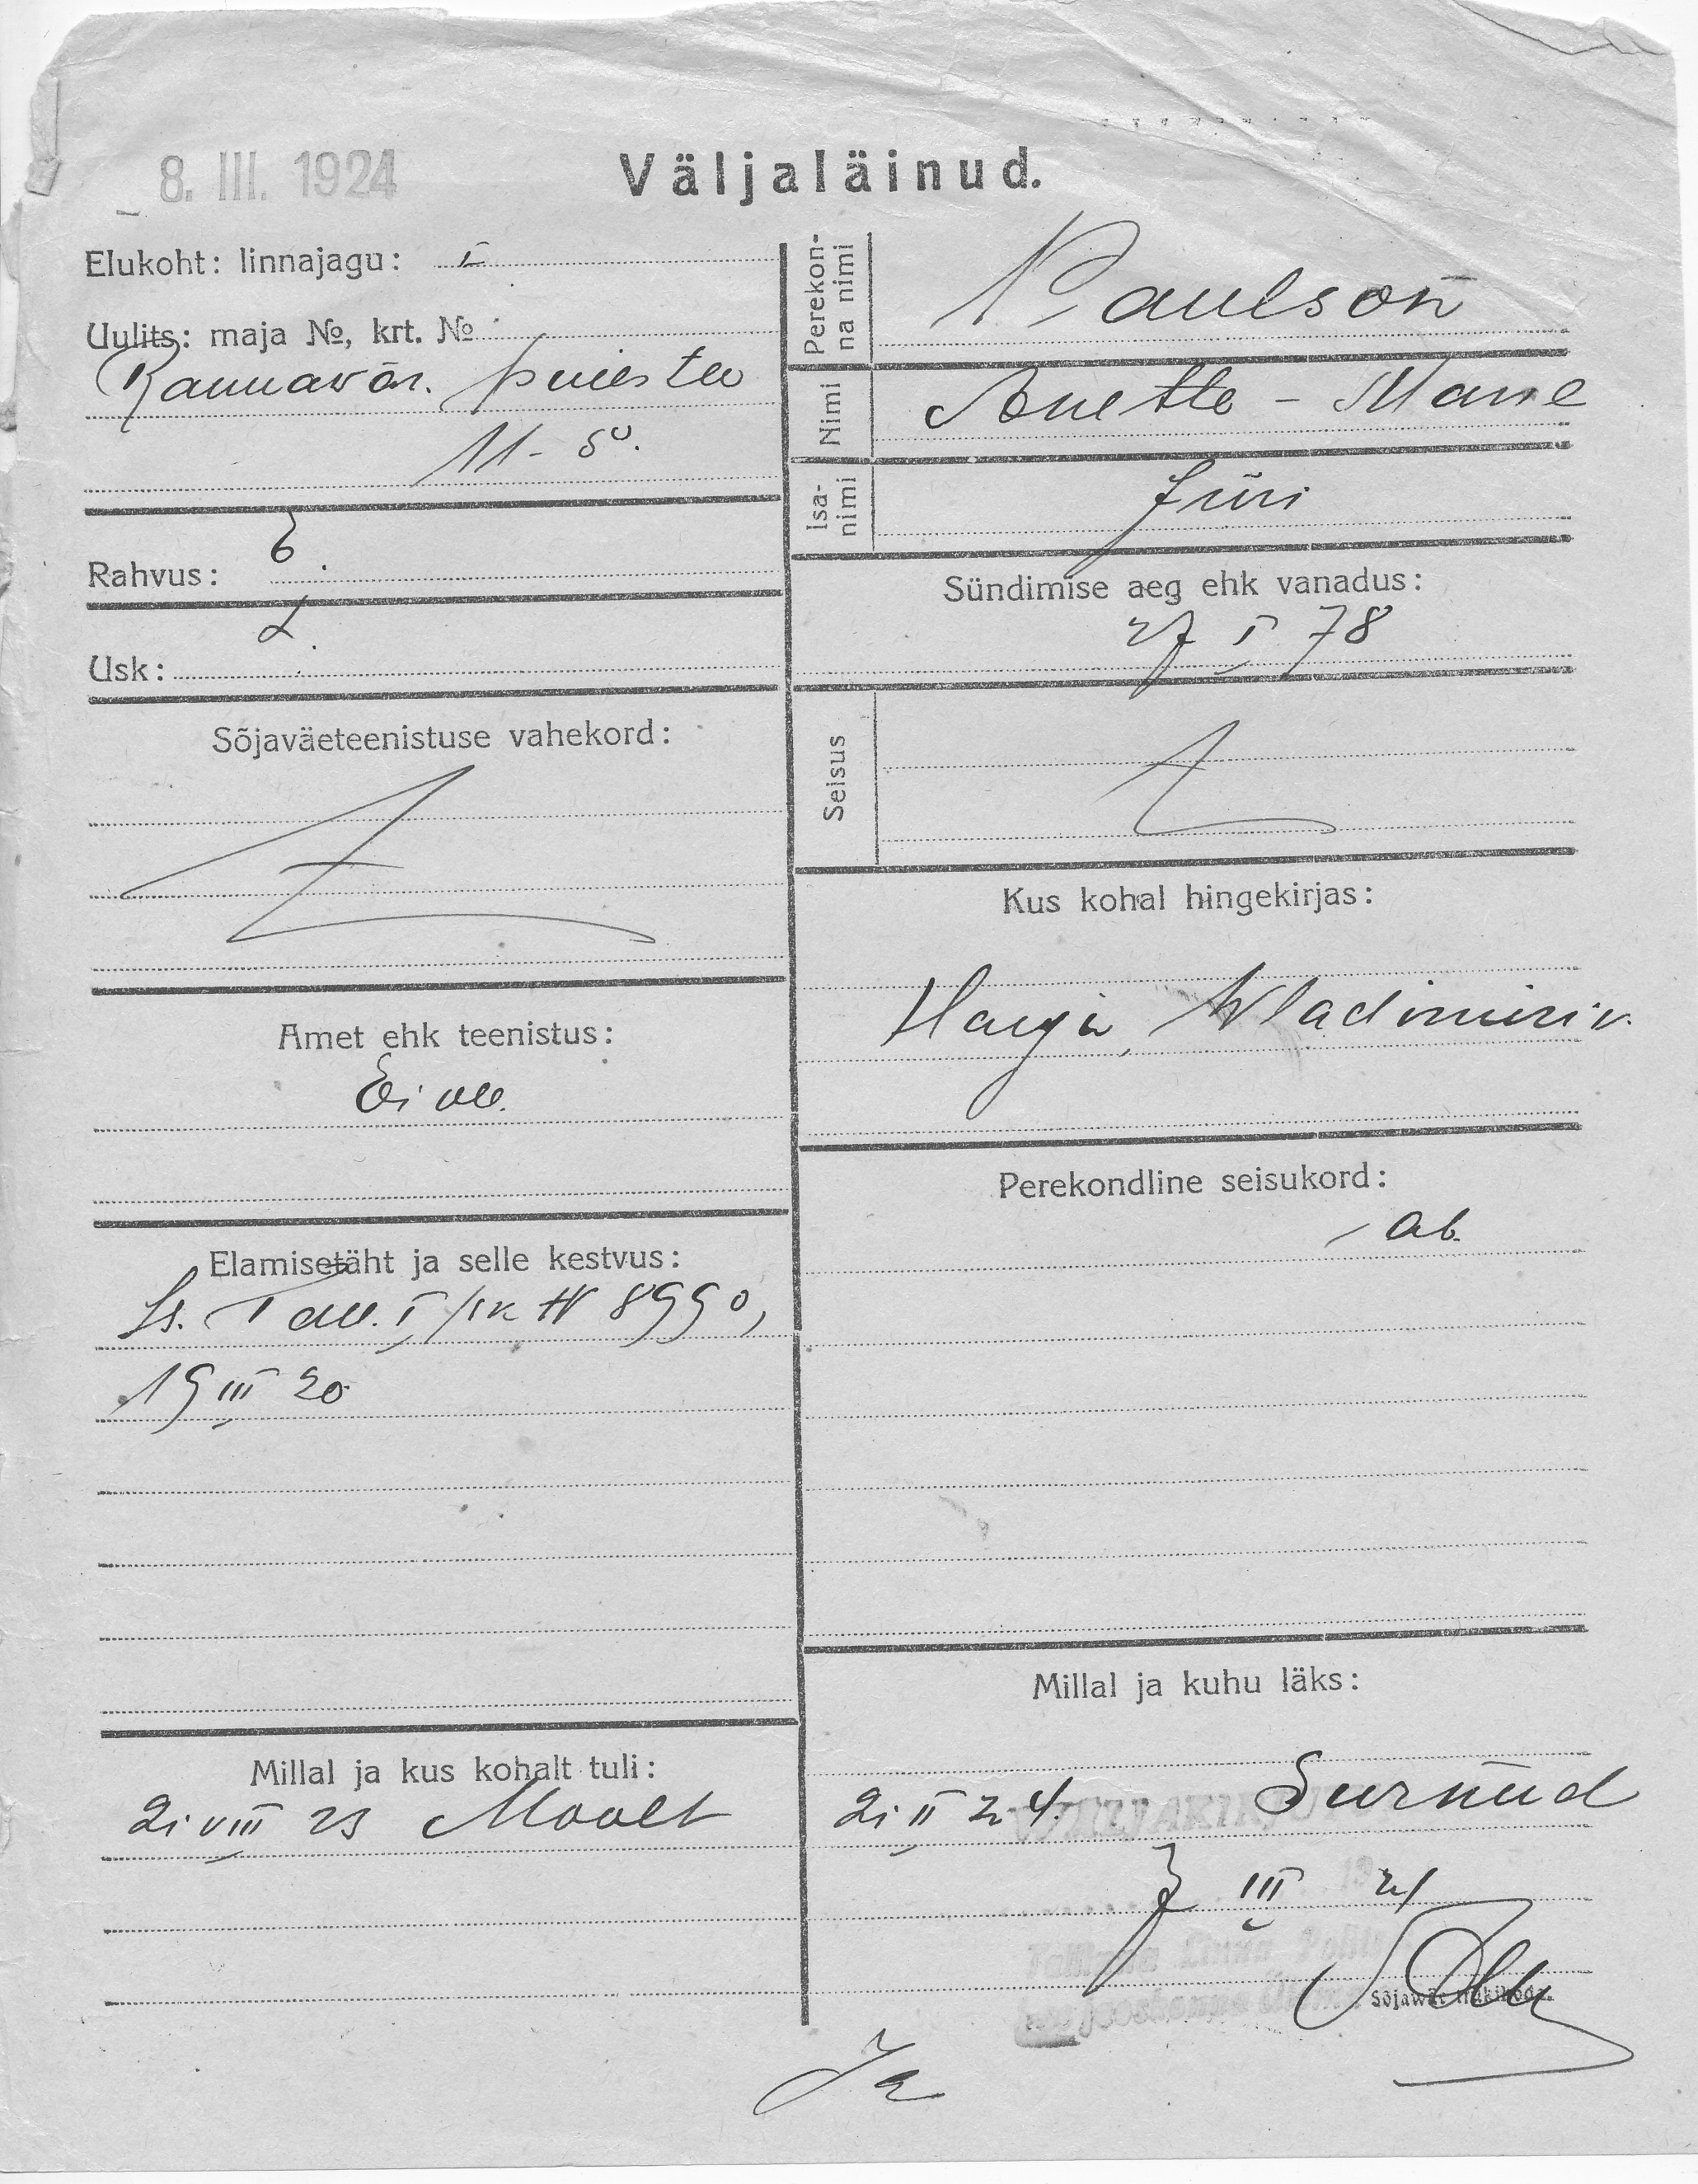 8. III. 1924
Väljaläinud.
Elukoht: linnajagu: I
Uulits: maja №, krt. №
Rannavär. puiestee
11-50.
Rahvus: E.
Usk: L.
Sõjaväeteenistuse vahekord:
Amet ehk teenistus:
Ei ole.
Elamisetäht ja selle kestvus:
Is. Tall. I № 8990,
19 III 20
Millal ja kus kohalt tuli:
21 VIII 23 Maalt
Perekonna nimi
Paulson
Nimi
Anette - Marie
Isanimi
Jüri
Sündimise aeg ehk vanadus:
27 I 78
Seisus
Kus kohal hingekirjas:
Harju, Wladimiri v.
Perekondline seisukord:
ab.
Millal ja kuhu läks:
21 II 24. Surnud
WÄLJAKIRJUT
7 III 24
Tallinna Linna Politsei
Sõjawäe trükikoda.